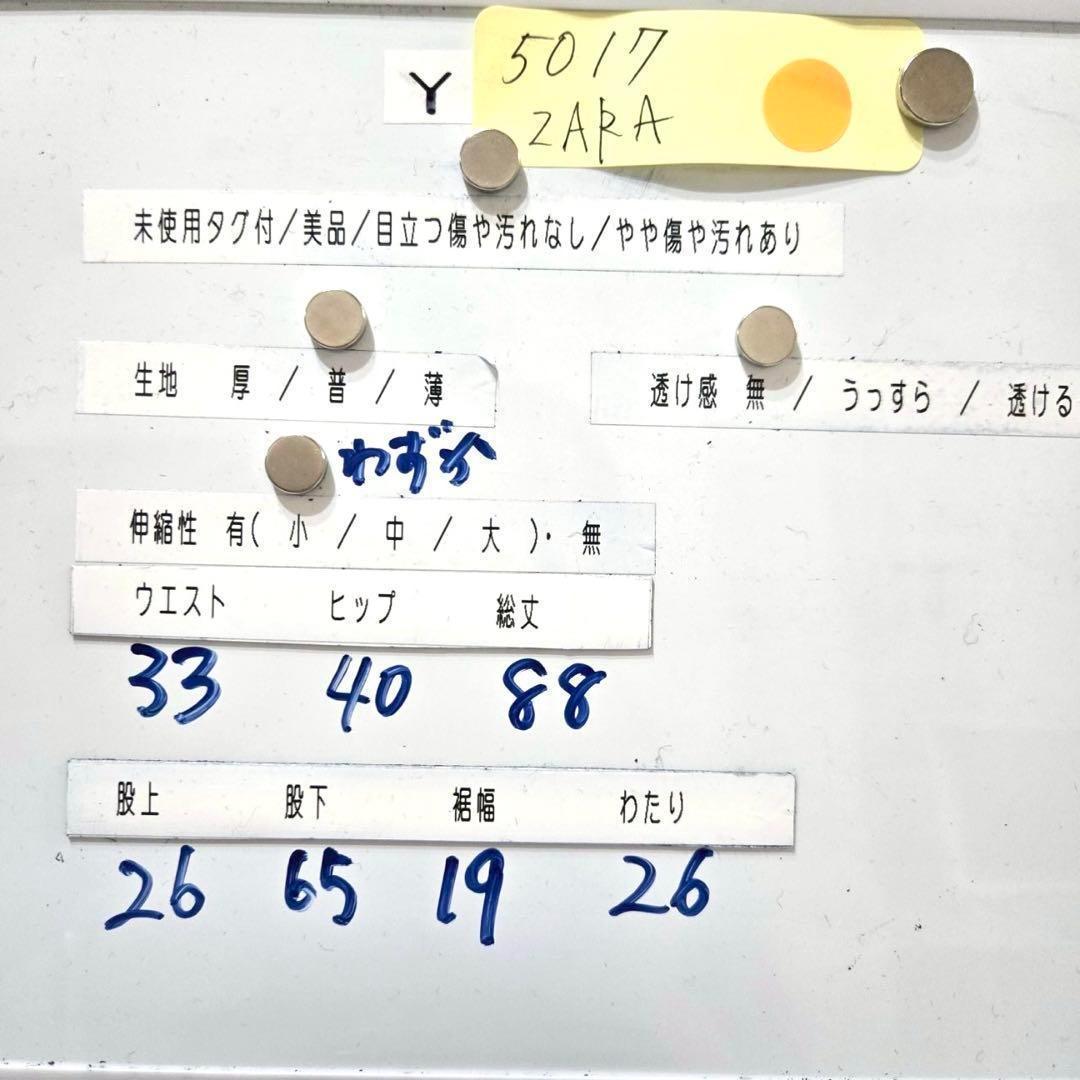 Y
5017
ZARA
未使用タグ付/美品/目立つ傷や汚れなし/やや傷や汚れあり
生地 厚 / 普 / 薄
透け感 無 / うっすら / 透ける
わずか
伸縮性 有( 小 / 中 / 大 )・ 無
ウエスト ヒップ 総丈
33 40 88
股上 股下 裾幅 わたり
26 65 19 26